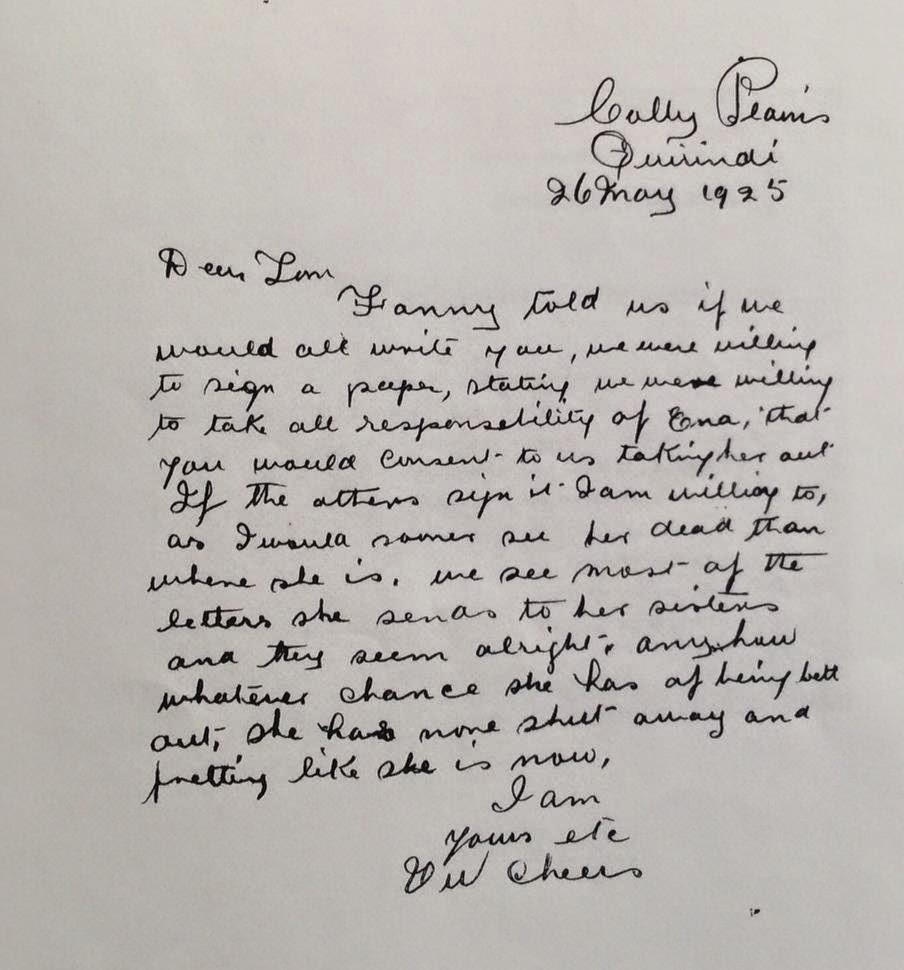 Colly Plains
Quirindi
26 May 1925
Dear Tom
Fanny told us if we
would all write you, we were willing
to sign a paper, stating we were willing
to take all responsebility of Ena, that
you would consent to us taking her out
If the others sign it I am willing to,
as I would sooner see her dead than
where she is. we see most of the
letters she sends to her sisters
and they seem alright, anyhow
whatever chance she has of being bett
out, she has none shut away and
fretting like she is now,
I am
yours etc
W Cheers